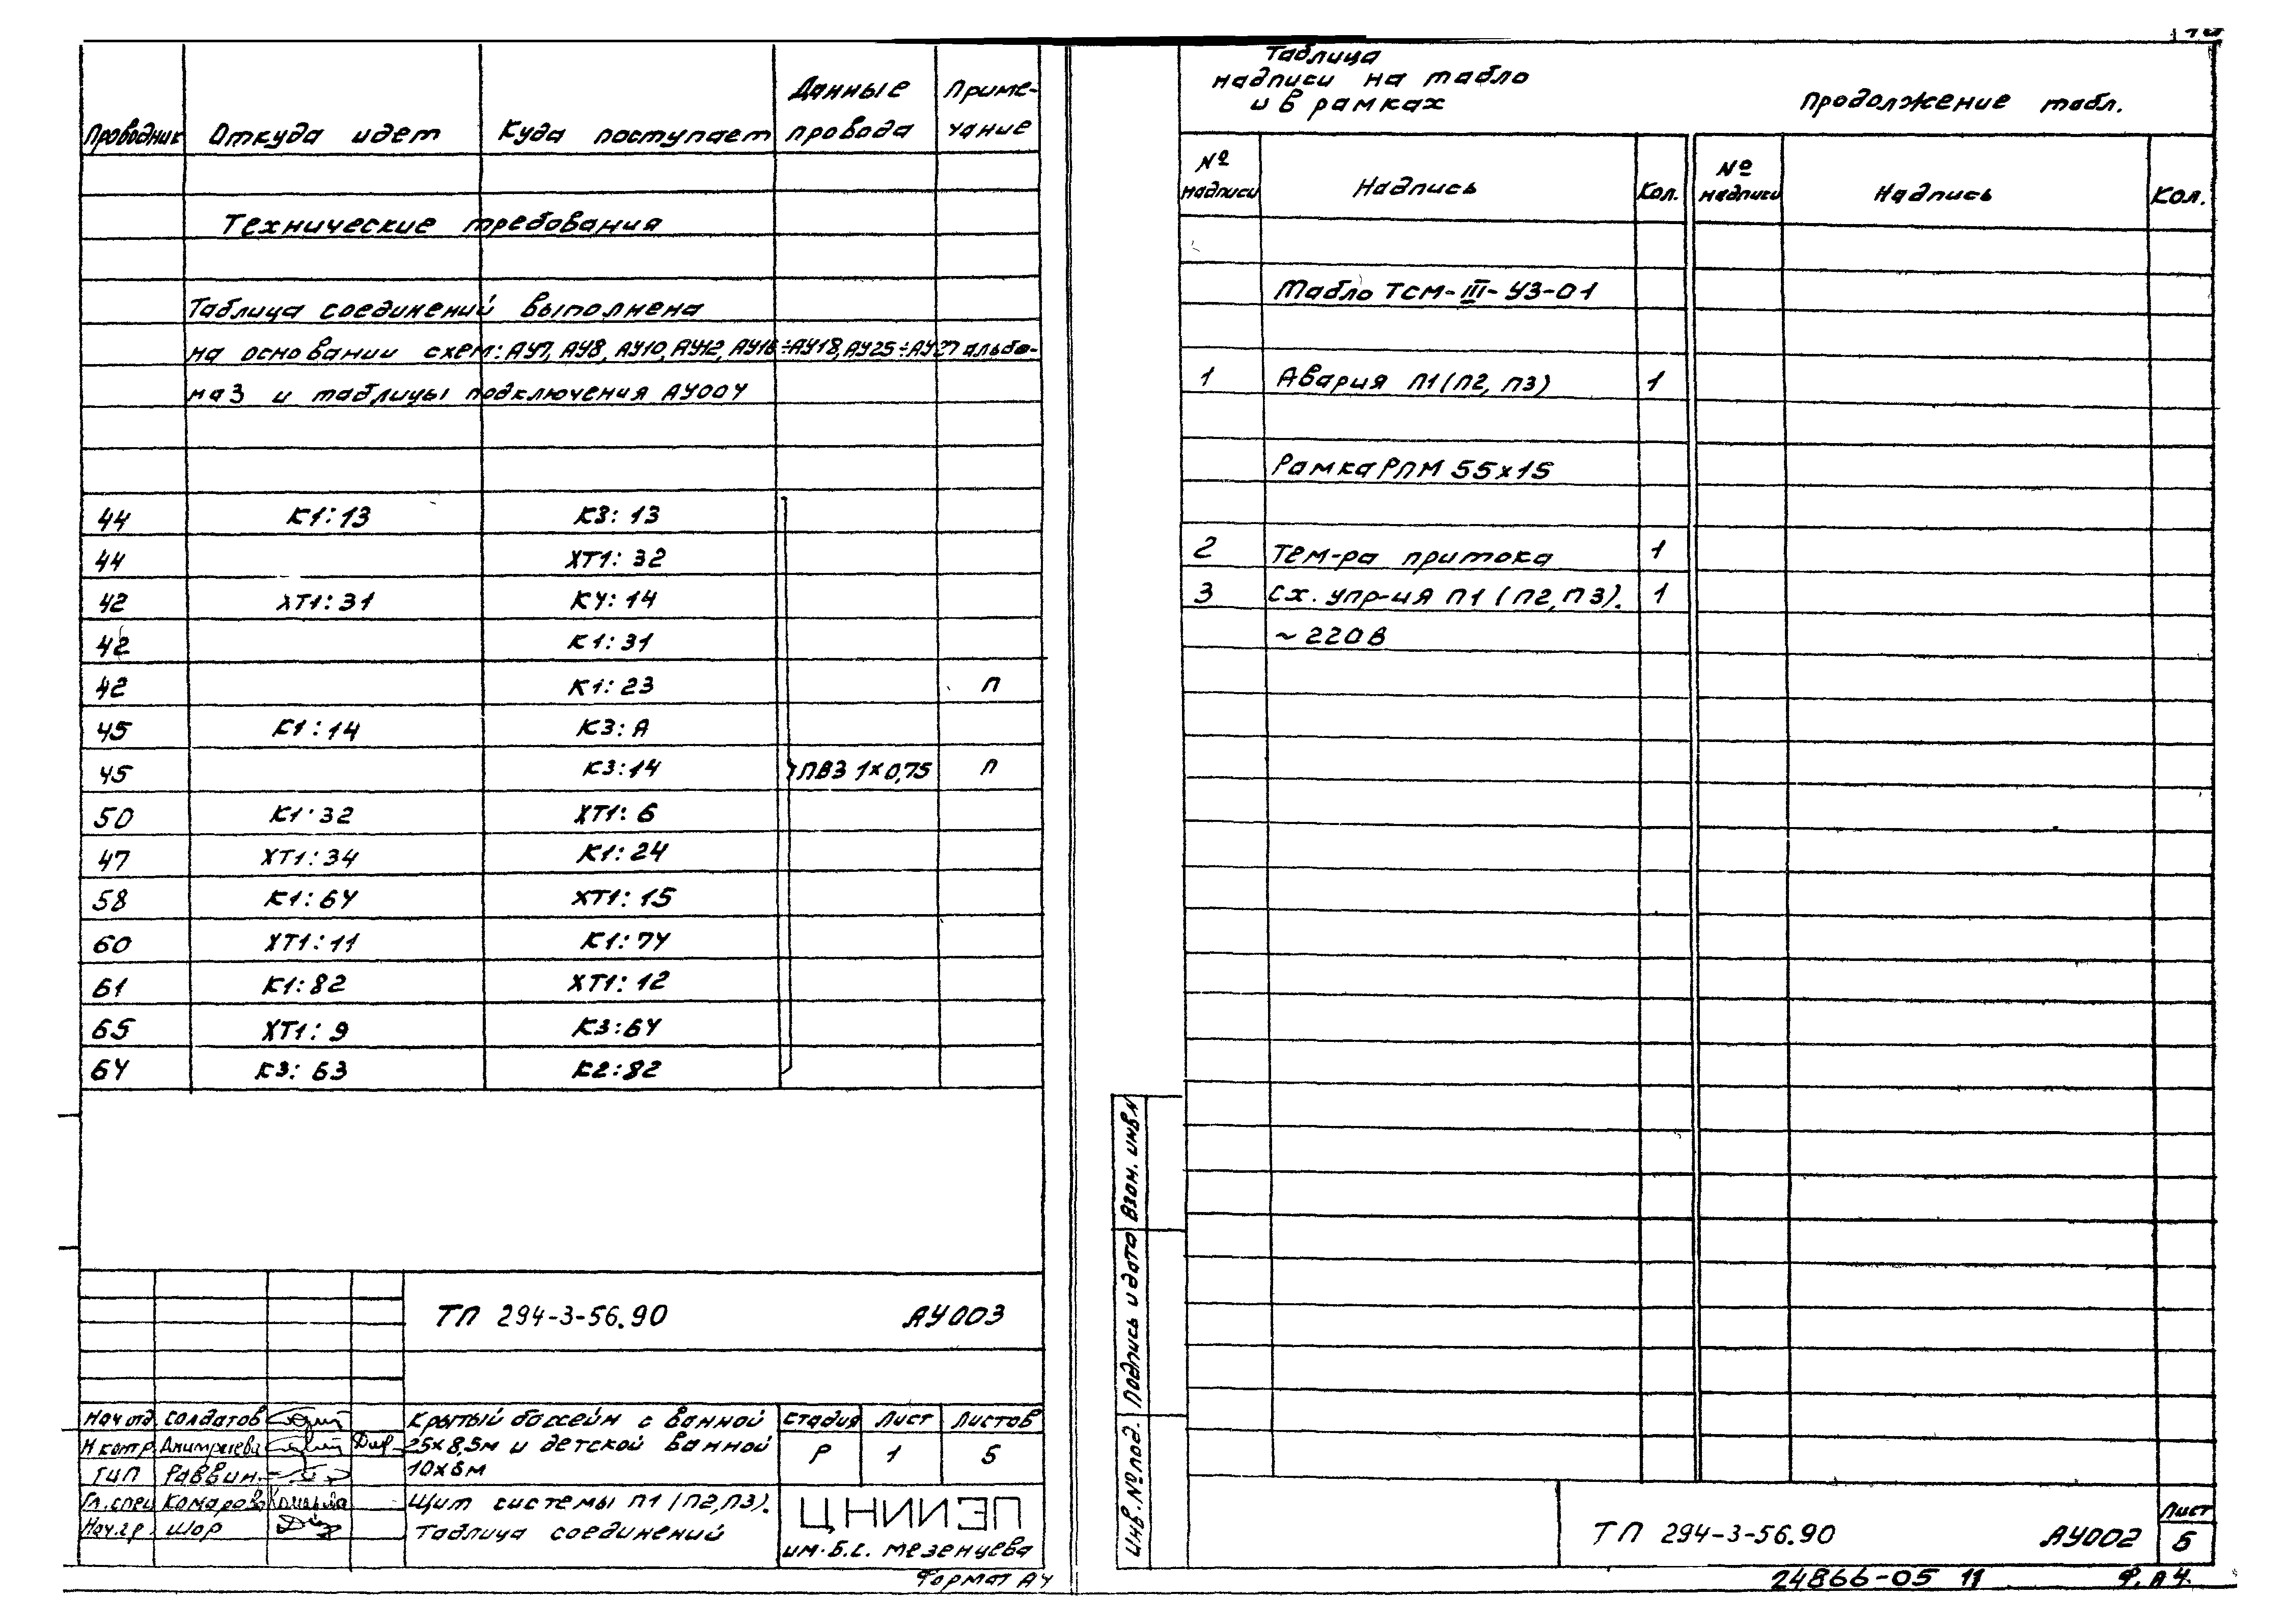 Проводник Откуда идет Куда поступает Данные провода Приме-чание
Технические требования
Таблица соединений выполнена
на основании схем: АУ7, АУ8, АУ10, АУ12, АУ16÷АУ18, АУ25÷АУ27 альбо-
ма 3 и таблицы подключения АУ004
44 К1:13 К3:13
44 ХТ1:32
42 ХТ1:31 К4:14
42 К1:31
42 К1:23 П
45 К1:14 К3:А
45 К3:14 ПВ3 1×0,75 П
50 К1:32 ХТ1:6
47 ХТ1:34 К1:24
58 К1:64 ХТ1:15
60 ХТ1:11 К1:74
61 К1:82 ХТ1:12
65 ХТ1:9 К3:64
64 К3:63 К2:82
ТП 294-3-56.90 АУ003
Нач отд. Солдатов
Н контр. Дмитриева
ГИП Раввин
Гл. спец Комарова
Нач. гр. Шор
Крытый бассейн с ванной
25×8,5м и детской ванной
10×6м
Стадия Лист Листов
Р 1 5
Щит системы П1 (П2, П3).
Таблица соединений
ЦНИИЭП
им. Б.С. Мезенцева
Формат А4
Таблица
надписи на табло
и в рамках
Продолжение табл.
№ надписи Надпись Кол. № надписи Надпись Кол.
Табло ТСМ-III-У3-01
1 Авария П1 (П2, П3) 1
Рамка РПМ 55×15
2 Тем-ра притока 1
3 Сх. упр-ия П1 (П2, П3). 1
~ 220 В
Инв. № под. Подпись и дата Взам. инв. №
ТП 294-3-56.90 АУ002
Лист
5
24866-05 11 Ф. А4.